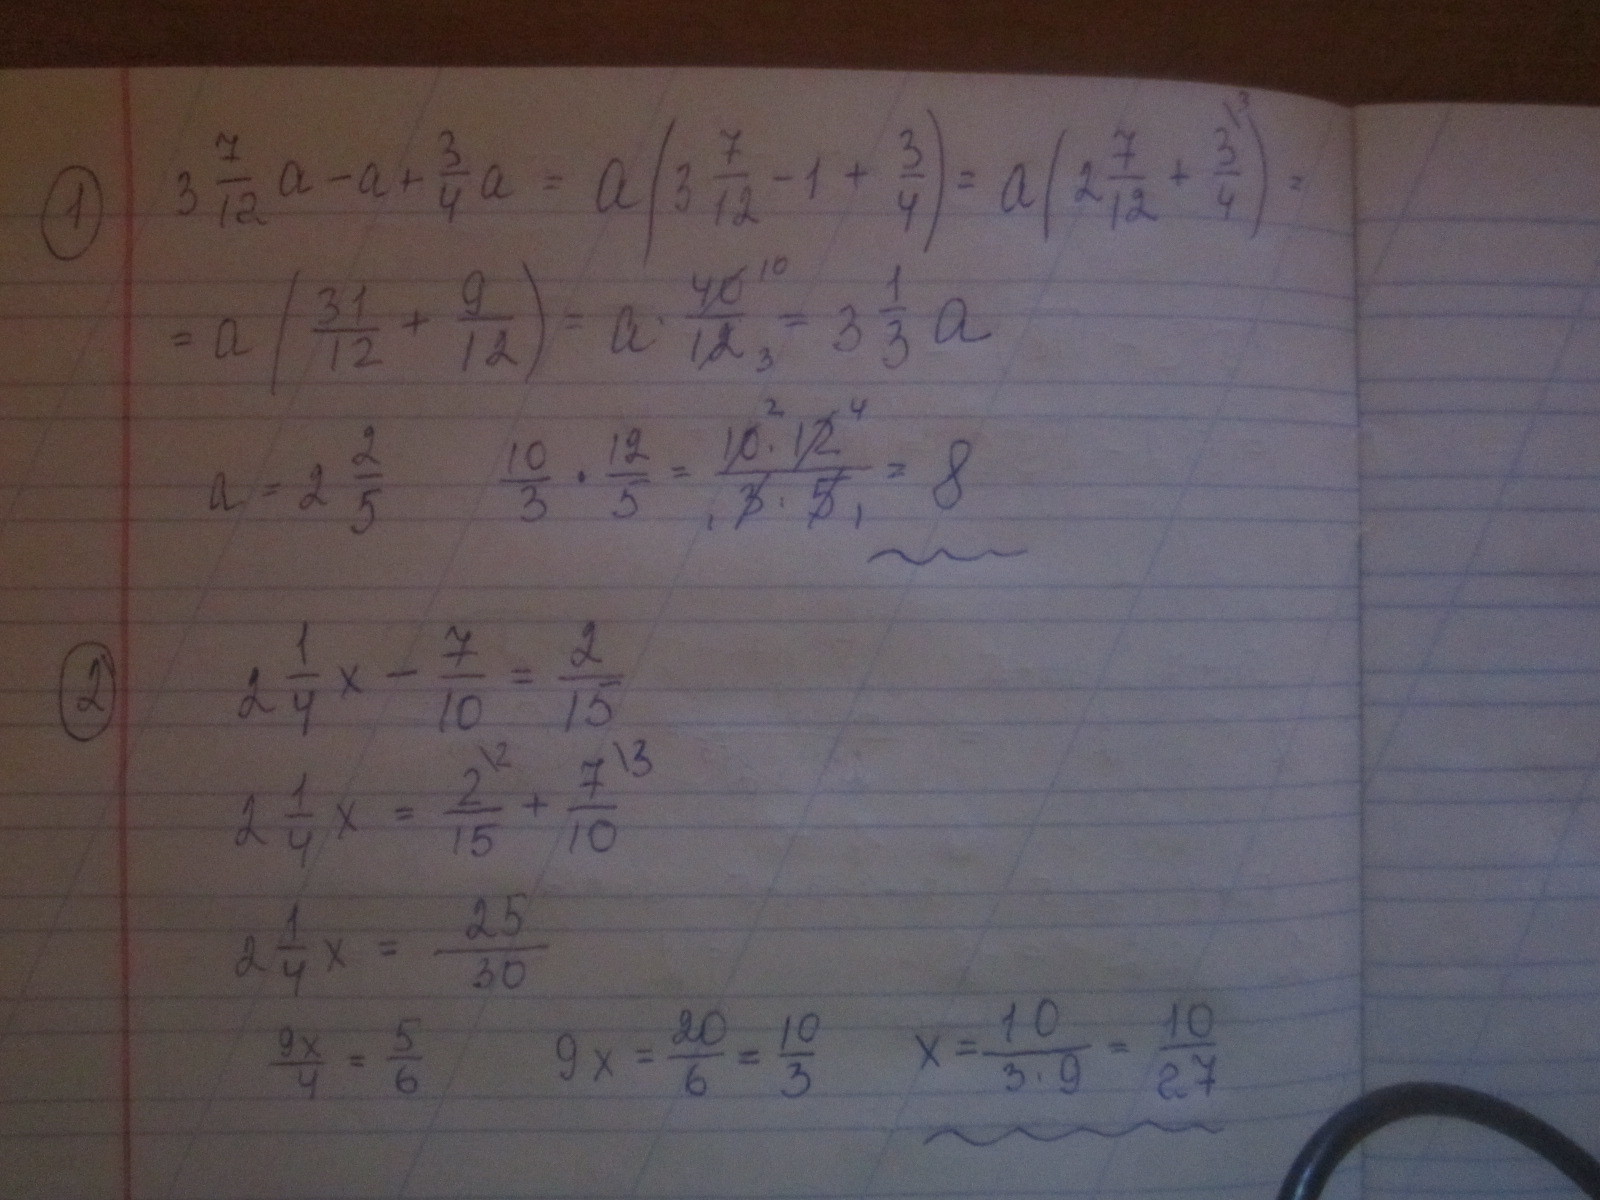 ① 3 7/12 a - a + 3/4 a = a(3 7/12 - 1 + 3/4) = a(2 7/12 + 3/4 \3) =
= a(31/12 + 9/12) = a · 40 10/12 3 = 3 1/3 a
a = 2 2/5 10/3 · 12/5 = 10 2 · 12 4/1 3 · 5 1 = 8
② 2 1/4 x - 7/10 = 2/15
2 1/4 x = 2/15 \2 + 7/10 \3
2 1/4 x = 25/30
9x/4 = 5/6 9x = 20/6 = 10/3 x = 10/3·9 = 10/27